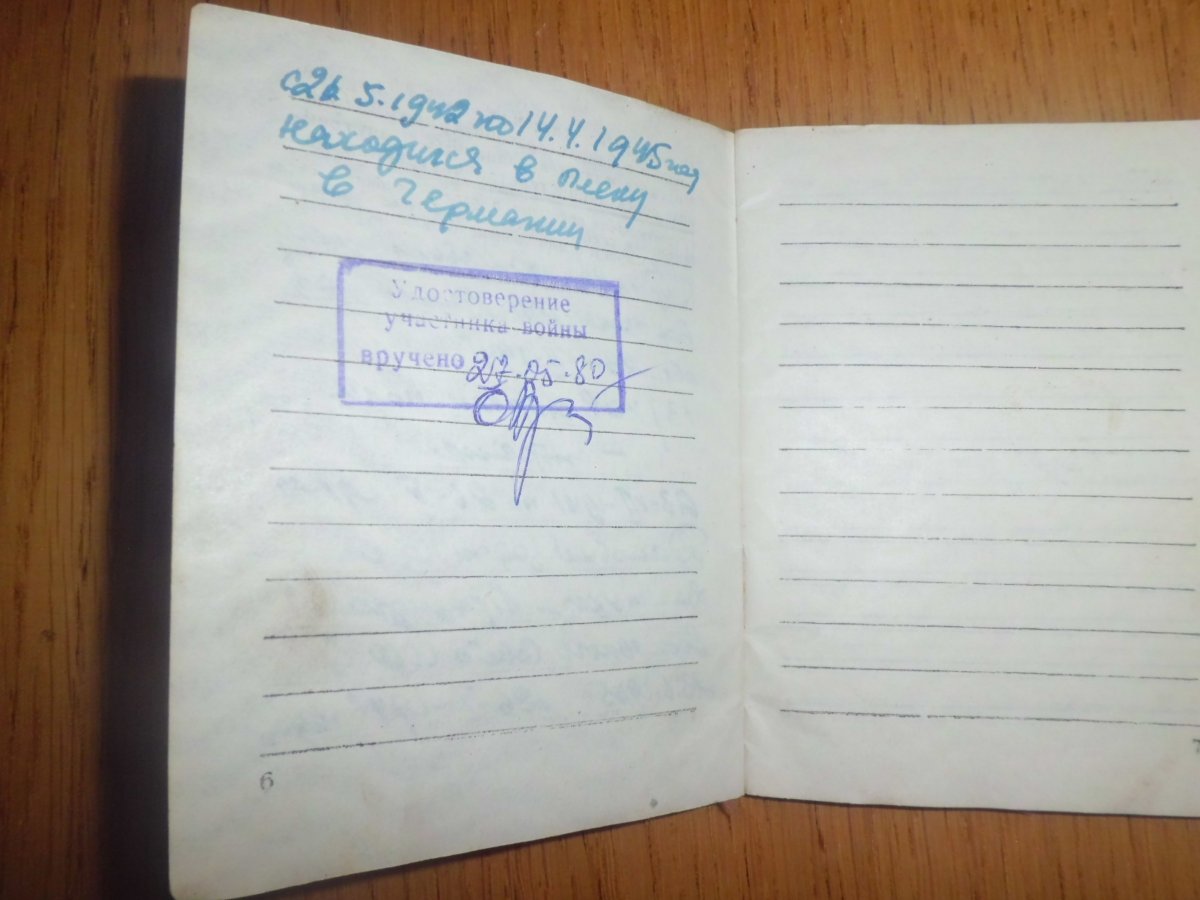 с 26. 5. 1942 по 14. 4. 1945 год
находился в плену
в Германии
Удостоверение
участника войны
вручено 27.05.80
6
7